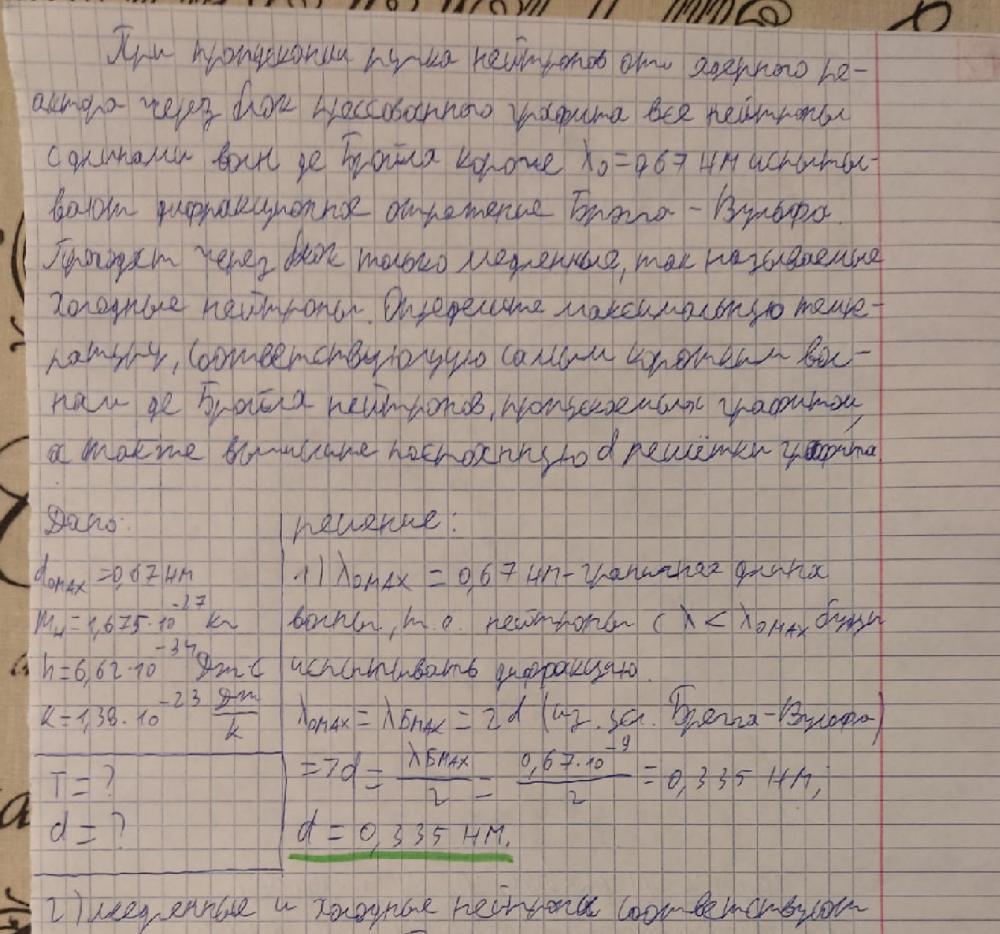 При пропускании пучка нейтронов от ядерного ре-
актора через блок прессованного графита все нейтроны
с длинами волн де Бройля короче λ0=0,67 нм испыты-
вают дифракционное отражение Брэгга-Вульфа.
Проходят через блок только медленные, так называемые
холодные нейтроны. Определите максимальную темпе-
ратуру, соответствующую самым коротким вол-
нам де Бройля нейтронов, пропускаемых графитом,
а также вычислите постоянную d решётки графита
Дано:
λ0MAX = 0,67 нм
mн = 1,675·10^-27 кг
h = 6,62·10^-34 Дж·с
k = 1,38·10^-23 Дж/k
T = ?
d = ?
решение:
1) λ0MAX = 0,67 нм - граничная длина
волны, т.о. нейтроны с λ < λ0MAX будут
испытывать дифракцию.
λ0MAX = λБMAX = 2d (из. усл. Брэгга-Вульфа)
=> d = λБMAX/2 = 0,67·10^-9/2 = 0,335 нм;
d = 0,335 нм.
2) медленные и холодные нейтроны соответствуют